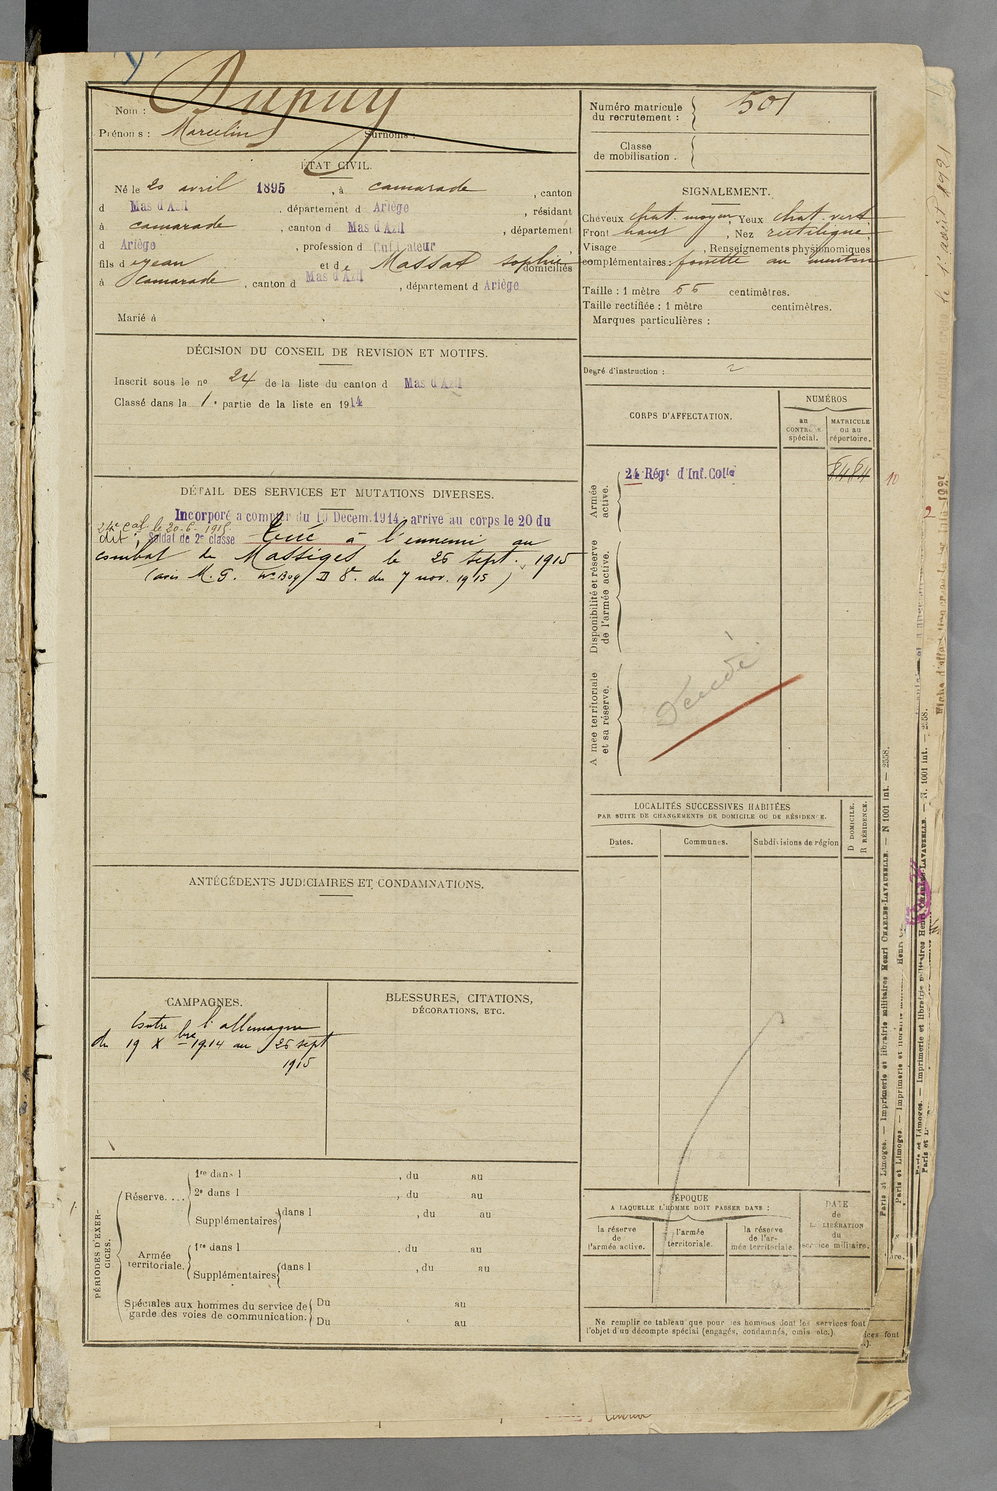 Nom : Dupuy
Prénoms : Marcelin Surnoms :
ÉTAT CIVIL.
Né le 20 avril 1895, à camarade, canton
d Mas d'Azil, département d Ariège, résidant
à camarade, canton d Mas d'Azil, département
d Ariège, profession d Cultivateur
fils d e Jean et de Massat Sophie domiciliés
à Camarade, canton d Mas d'Azil, département d Ariège
Marié à
DÉCISION DU CONSEIL DE REVISION ET MOTIFS.
Inscrit sous le no 24 de la liste du canton d Mas d'Azil
Classé dans la 1e partie de la liste en 1914
DÉTAIL DES SERVICES ET MUTATIONS DIVERSES.
Incorporé a compter du 19 Décem. 1914; arrive au corps le 20 du
dit, Soldat de 2e classe Tué à l'ennemi au
combat de Massiges le 25 sept. 1915
(avis M. G. No du 7 nov. 1915)
ANTÉCÉDENTS JUDICIAIRES ET CONDAMNATIONS.
CAMPAGNES.
Contre l'allemagne
du 19 Xbre 1914 au 25 sept
1915
BLESSURES, CITATIONS,
DÉCORATIONS, ETC.
PÉRIODES D'EXERCICES.
Réserve....
1re dans l , du au
2e dans l , du au
Supplémentaires dans l , du au
Armée territoriale.
1re dans l , du au
Supplémentaires dans l , du au
Spéciales aux hommes du service de Du au
garde des voies de communication. Du au
Numéro matricule
du recrutement : 501
Classe
de mobilisation .
SIGNALEMENT.
Cheveux chat. moyen, Yeux chat. vert
Front haut, Nez rectiligne
Visage , Renseignements physionomiques
complémentaires : fossette au menton
Taille : 1 mètre 66 centimètres.
Taille rectifiée : 1 mètre centimètres.
Marques particulières :
Degré d'instruction : 2
CORPS D'AFFECTATION.
NUMÉROS
au
CONTROLE
spécial.
MATRICULE
ou au
répertoire.
Armée
active.
24 Régt d'Inf. Colle
8484
Disponibilité et réserve
de l'armée active.
Armée territoriale
et sa réserve.
Décédé
LOCALITÉS SUCCESSIVES HABITÉES
PAR SUITE DE CHANGEMENTS DE DOMICILE OU DE RÉSIDENCE.
Dates.
Communes.
Subdivisions de région
D DOMICILE.
R RÉSIDENCE.
ÉPOQUE
A LAQUELLE L'HOMME DOIT PASSER DANS :
la réserve
de
l'armée active.
l'armée
territoriale.
la réserve
de l'ar-
mée territoriale.
DATE
de
LA LIBÉRATION
du
service militaire.
Ne remplir ce tableau que pour les hommes dont les services font
l'objet d'un décompte spécial (engagés, condamnés, omis etc.)
Paris et Limoges. — Imprimerie et librairie militaires Henri CHARLES-LAVAUZELLE. — N 1001 int. — 2558.